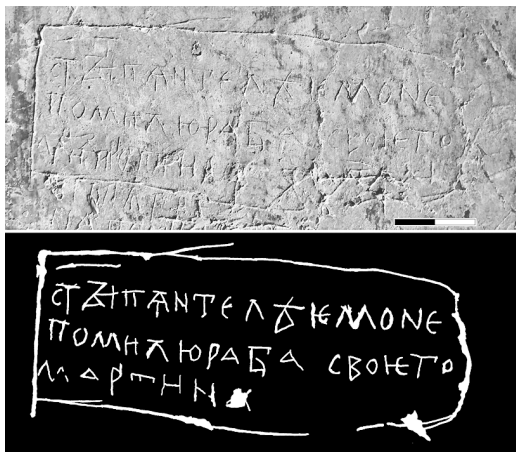 СТЪИПАНТЕЛѢѤМОНЕ
ПОМИЛЮРАБА СВОѤГО
МАРТИНА